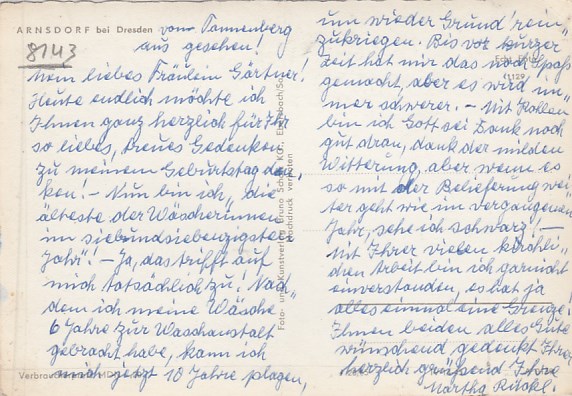 ARNSDORF bei Dresden vom Tannenberg
aus gesehen!
8143
Mein liebes Fräulein Gärtner!
Heute endlich möchte ich
Ihnen ganz herzlich für Ihr
so liebes, treues Gedenken
zu meinem Geburtstag dan„
ken! – Nun bin ich „die
älteste der Wäscherinnen
im siebundsiebenzigsten
Jahr"! – Ja, das trifft auf
mich tatsächlich zu! Nach„
dem ich meine Wäsche
6 Jahre zur Waschanstalt
gebracht habe, kann ich
mich jetzt 10 Jahre plagen,
um wieder Grund „rein"
zukriegen. Bis vor kurzer
Zeit hat mir das noch Spaß
gemacht, aber es wird im„
mer schwerer. – Mit Kohlen
bin ich Gott sei Dank noch
gut dran, dank der milden
Witterung, aber wenn es
so mit der Belieferung wei„
ter geht wie im vergangenen
Jahr, sehe ich schwarz! –
Mit Ihrer vielen kirchli„
chen Arbeit bin ich garnicht
einverstanden, es hat ja
alles einmal eine Grenze!
Ihnen beiden alles Gute
wünschend gedenkt Ihrer
herzlich grüßend Ihre
Martha Rückl.
Foto- und Kunstverlag Bruno Scholz KG.,
Nachdruck verboten
11129